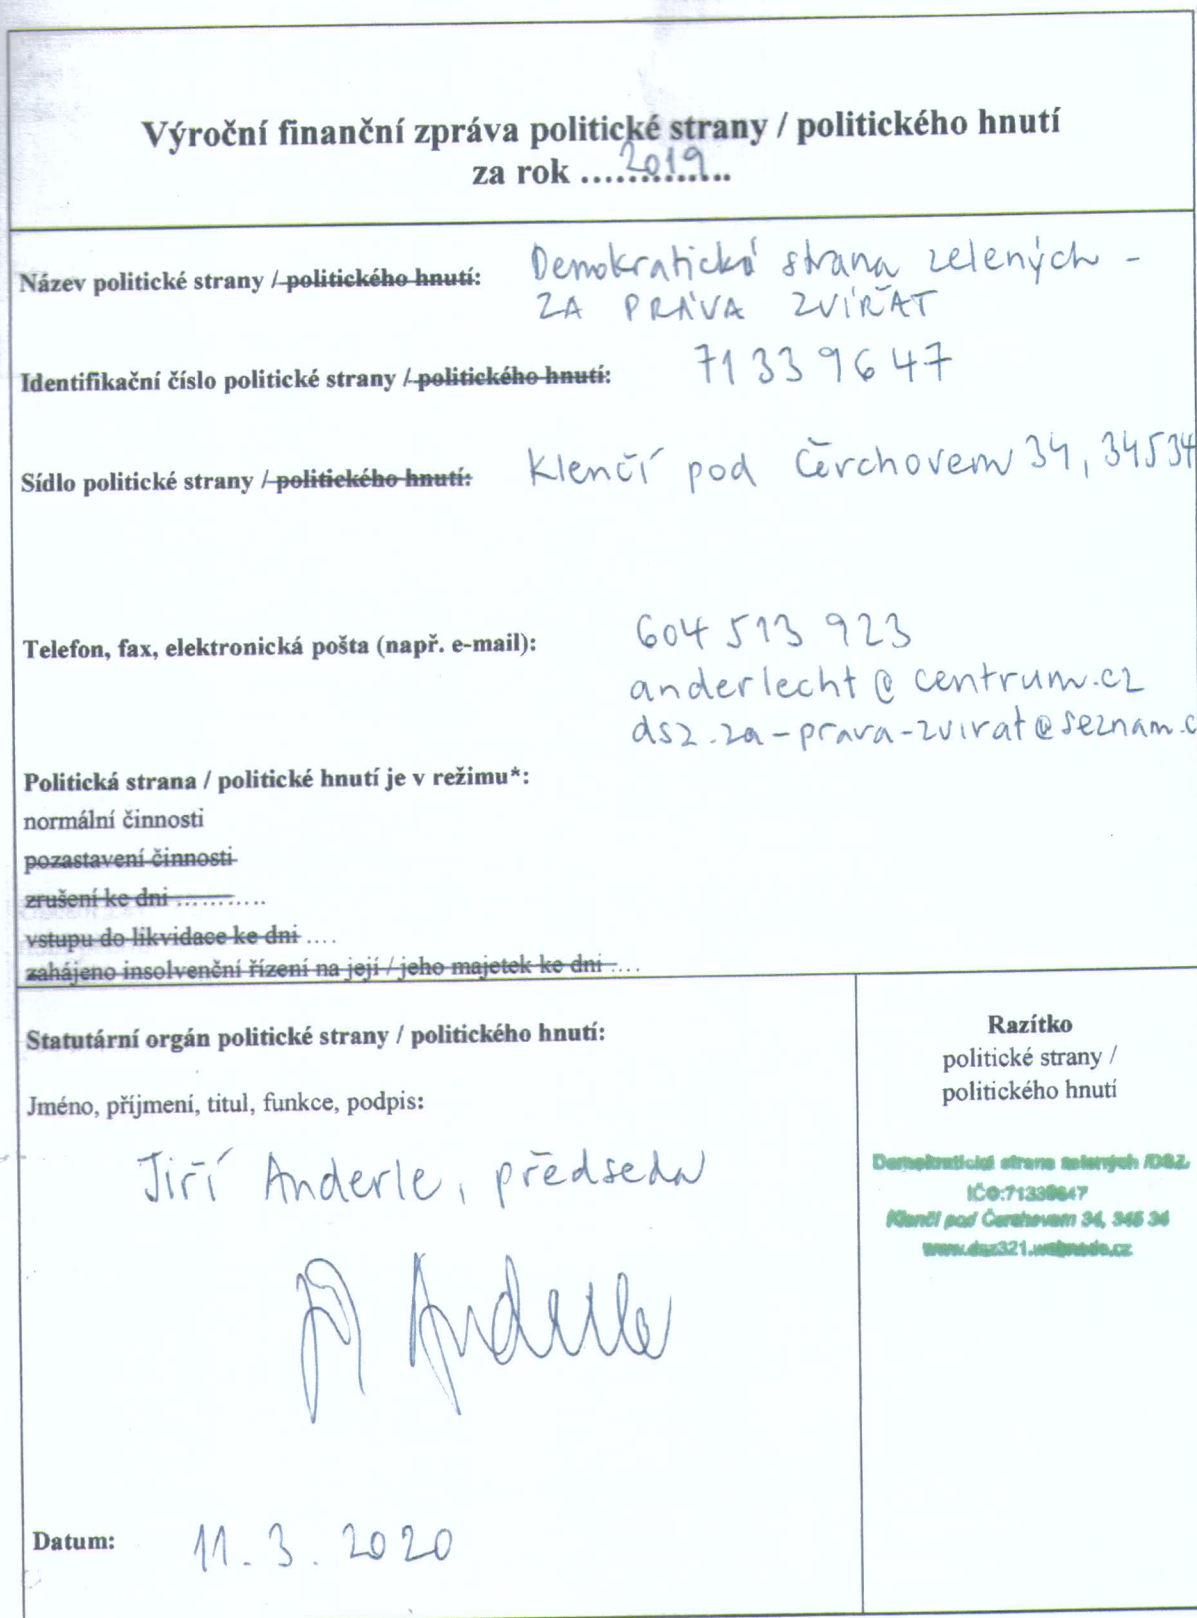 Výroční finanční zpráva politické strany / politického hnutí
za rok ....2019....
Název politické strany / politického hnutí: Demokratická strana zelených -
ZA PRÁVA ZVÍŘAT
Identifikační číslo politické strany / politického hnutí: 71339647
Sídlo politické strany / politického hnutí: Klenčí pod Čerchovem 34, 34534
Telefon, fax, elektronická pošta (např. e-mail): 604 513 923
anderlecht@centrum.cz
dsz.za-prava-zvirat@seznam.c
Politická strana / politické hnutí je v režimu*:
normální činnosti
pozastavení činnosti
zrušení ke dni ...........
vstupu do likvidace ke dni ....
zahájeno insolvenční řízení na její / jeho majetek ke dni ....
Statutární orgán politické strany / politického hnutí:
Jméno, příjmení, titul, funkce, podpis:
Jiří Anderle, předseda
Anderle
Datum: 11. 3. 2020
Razítko
politické strany /
politického hnutí
Demokratická strana zelených /DSZ,
IČO:71339647
Klenčí pod Čerchovem 34, 345 34
www.dsz321.webnode.cz